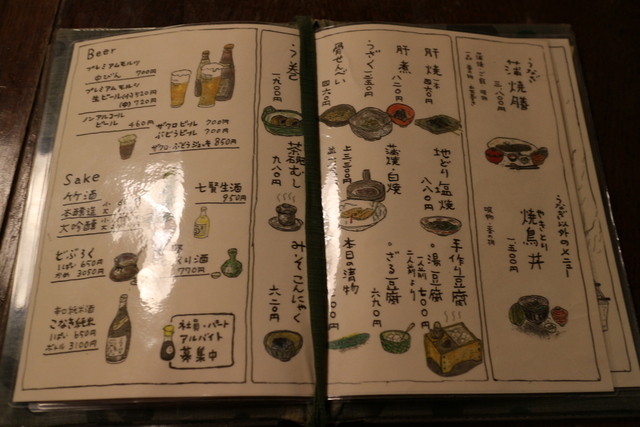 Beer
プレミアムモルツ
中びん 700円
プレミアムモルツ
生ビール(小)520円
(中)720円
ノンアルコール
ビール 460円
ザクロビール 700円
ぶどうビール 700円
ザクロ・ぶどうジョッキ 850円
Sake
竹酒
本醸造
大吟醸
七賢生酒
950円
どぶろく
いっぱい 650円
かめ 3050円
り酒
770円
辛口純米酒
こなき純米
いっぱい 650円
ボトル 3100円
社員・パート
アルバイト
募集中
う巻
茶碗むし
九八〇円
みそこんにゃく
六二〇円
肝焼
肝煮
八二〇円
うざく
骨せんべい
地どり塩焼
八八〇円
蒲焼・白焼
本日の漬物
手作り豆腐
湯豆腐
ざる豆腐
うなぎ
蒲焼膳
三八〇〇円
うなぎ以外のメニュー
やきとり
焼鳥丼
一五〇〇円